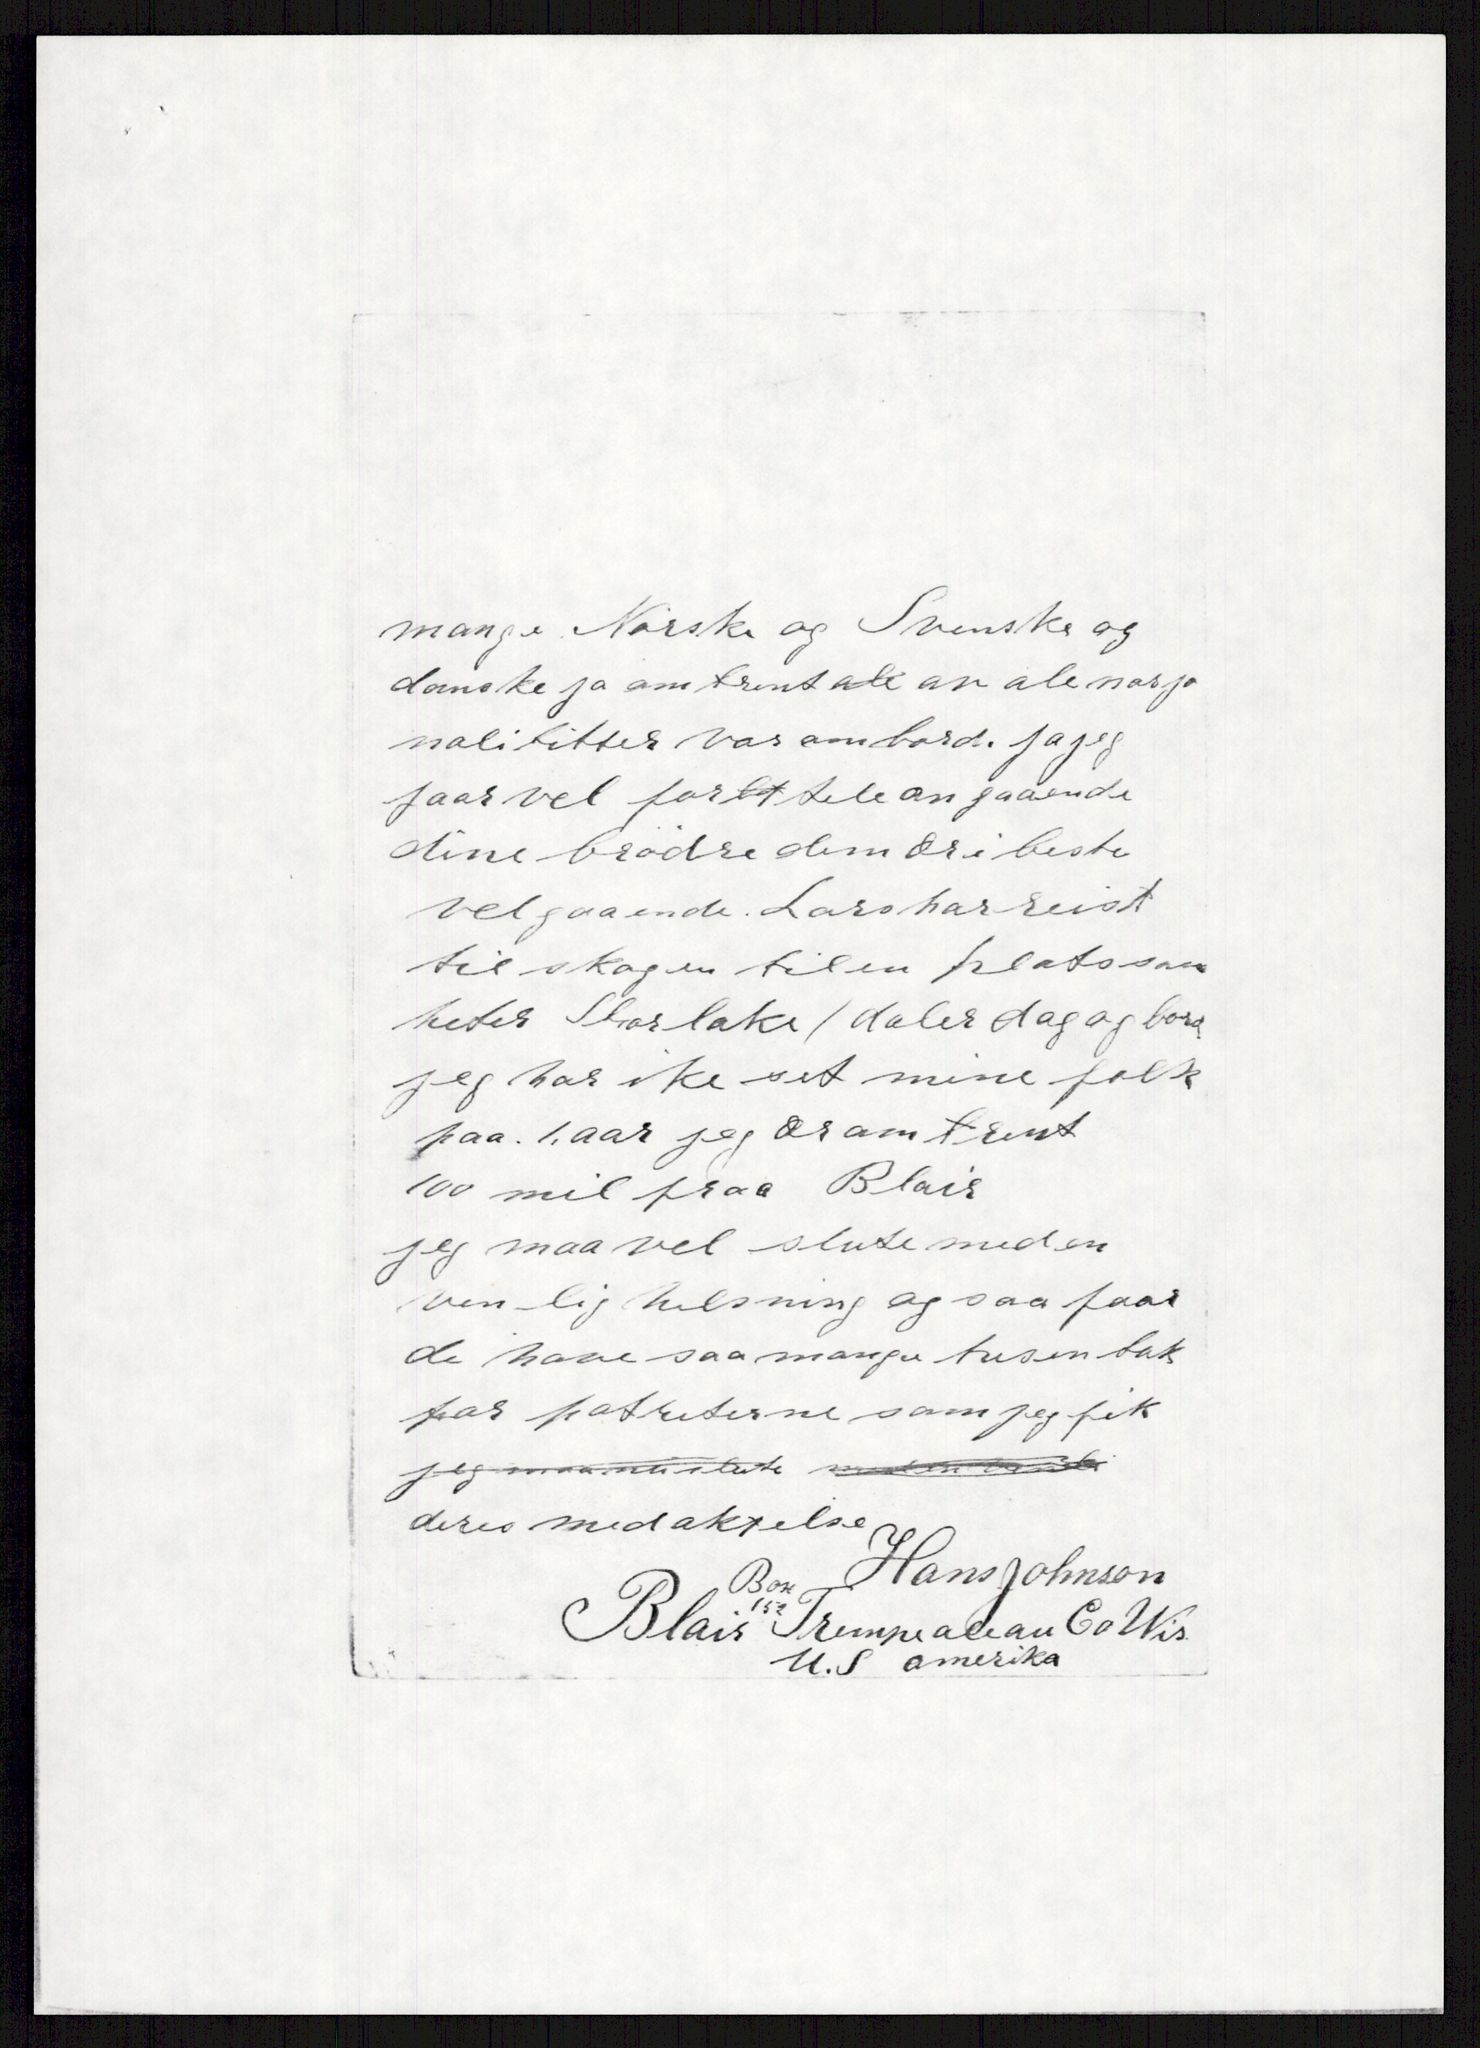 mange Norske og Svenske og
danske ja amtrent alt av ale nasjo
nalititter var ambord. ja jeg
faar vel fortele angaaende
dine brødre dem er i beste
velgaaende. Lars har reist
til skagen til en plats sam
heter Starlake 1 daler dag og bord
jeg har ike set mine folk
paa. 1. aar jeg er amtrent
100 mil fraa Blair
jeg maa vel slute med en
venlig helsning og saa faar
de have saa mange tusen tak
far patreterne sam jeg fik
jeg maa nu slute
deres med aktelse
Hans Johnson
Box 152
Blair Trempealeau Co Wis.
U.S amerika